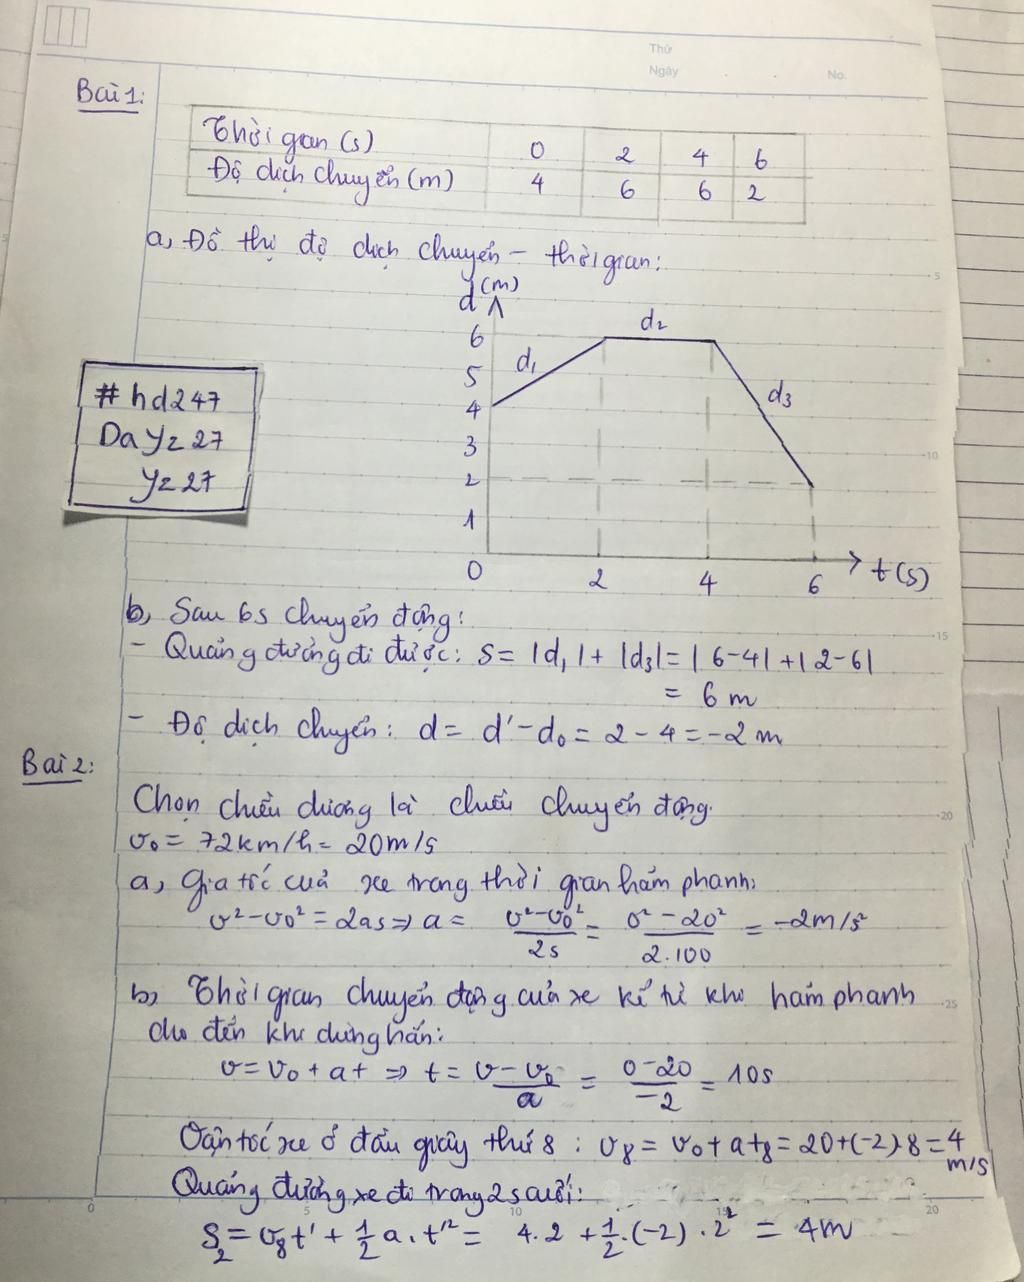 Thứ
Ngày
No.
Bài 1:
Thời gian (s) 0 2 4 6
Độ dịch chuyển (m) 4 6 6 2
a, Đồ thị độ dịch chuyển - thời gian:
d (m)
6
5
4
3
2
1
0
2
4
6
t (s)
d₁
d₂
d₃
# hd247
Dayz27
Yz27
b, Sau 6s chuyển động:
- Quãng đường đi được: s = |d₁| + |d₃| = |6-4| + |2-6|
= 6 m
- Độ dịch chuyển: d = d' - d₀ = 2 - 4 = -2 m
Bài 2:
Chọn chiều dương là chiều chuyển động.
v₀ = 72km/h = 20m/s
a, Gia tốc của xe trong thời gian hãm phanh:
v² - v₀² = 2as => a = (v² - v₀²)/2s = (0² - 20²)/2.100 = -2m/s²
b, Thời gian chuyển động của xe kể từ khi hãm phanh
cho đến khi dừng hẳn:
v = v₀ + at => t = (v - v₀)/a = (0 - 20)/-2 = 10s
Vận tốc xe ở đầu giây thứ 8 : v₈ = v₀ + at₈ = 20 + (-2).8 = 4 m/s
Quãng đường xe đi trong 2s cuối:
S₂ = v₈t' + 1/2 a.t'² = 4.2 + 1/2.(-2).2² = 4m
5
10
15
20
25
0
5
10
15
20